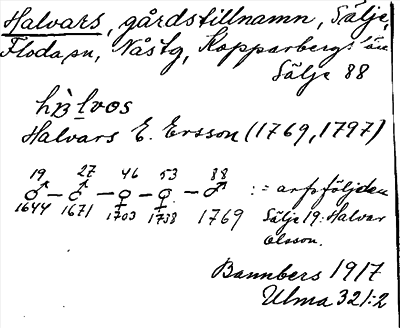 Halvars, gårdstillnamn, Sälje,
Floda sn, Nåstg, Kopparbergs län
Sälje 88
Halvars E. Ersson (1769, 1797)
19 27 46 53 88
♂ — ♂ — ♀ — ♀ — ♂ := arfsföljden
1644 1671 1703 1738 1769 Sälje 19: Halvar
Olsson.
Bannbers 1917
Ulma 321:2